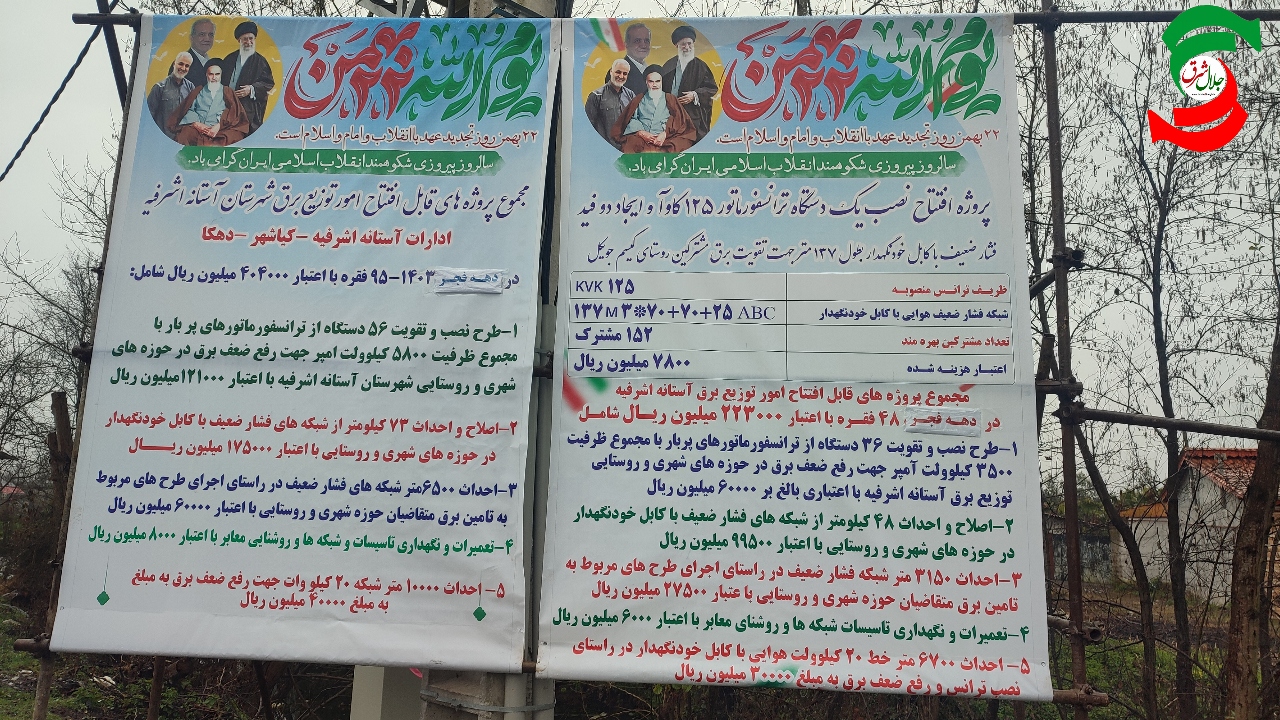 یوم الله ۲۲ بهمن
۲۲ بهمن روز تجدید عهد با انقلاب و امام و اسلام است.
سالروز پیروزی شکوهمند انقلاب اسلامی ایران گرامی باد.
پروژه افتتاح نصب یک دستگاه ترانسفورماتور ۱۲۵ کاوآ و ایجاد دو فید
فشار ضعیف با کابل خودنگهدار بطول ۱۳۷ متر جهت تقویت برق مشترکین روستای کیسم جوپیکل
ظریف ترانس منصوبه KVK ۱۲۵
شبکه فشار ضعیف هوایی با کابل خودنگهدار ۱۳۷M ۳*۷۰+۷۰+۲۵ ABC
تعداد مشترکین بهره مند ۱۵۲ مشترک
اعتبار هزینه شده ۷۸۰۰ میلیون ریال
مجموع پروژه های قابل افتتاح امور توزیع برق آستانه اشرفیه
در دهه فجر ۴۸ فقره با اعتبار ۲۲۳۰۰۰ میلیون ریال شامل
۱-طرح نصب و تقویت ۳۶ دستگاه از ترانسفورماتورهای پربار با مجموع ظرفیت
۳۵۰۰ کیلوولت آمپر جهت رفع ضعف برق در حوزه های شهری و روستایی
توزیع برق آستانه اشرفیه با اعتباری بالغ بر ۶۰۰۰۰ میلیون ریال
۲-اصلاح و احداث ۴۸ کیلومتر از شبکه های فشار ضعیف با کابل خودنگهدار
در حوزه های شهری و روستایی با اعتبار ۹۹۵۰۰ میلیون ریال
۳-احداث ۳۱۵۰ متر شبکه فشار ضعیف در راستای اجرای طرح های مربوط به
تامین برق متقاضیان حوزه شهری و روستایی با عتبار ۲۷۵۰۰ میلیون ریال
۴-تعمیرات و نگهداری تاسیسات شبکه ها و روشنای معابر با اعتبار ۶۰۰۰ میلیون ریال
۵- احداث ۶۷۰۰ متر خط ۲۰ کیلوولت هوایی با کابل خودنگهدار در راستای
نصب ترانس و رفع ضعف برق به مبلغ ۳۰۰۰۰ میلیون ریال
یوم الله ۲۲ بهمن
۲۲ بهمن روز تجدید عهد با انقلاب و امام و اسلام است.
سالروز پیروزی شکوهمند انقلاب اسلامی ایران گرامی باد.
مجموع پروژه های قابل افتتاح امور توزیع برق شهرستان آستانه اشرفیه
ادارات آستانه اشرفیه -کیاشهر -دهکا
در دهه فجر ۱۴۰۳-۹۵ فقره با اعتبار ۴۰۴۰۰۰ میلیون ریال شامل:
۱-طرح نصب و تقویت ۵۶ دستگاه از ترانسفورماتورهای پر بار با
مجموع ظرفیت ۵۸۰۰ کیلوولت امپر جهت رفع ضعف برق در حوزه های
شهری و روستایی شهرستان آستانه اشرفیه با اعتبار ۱۲۱۰۰۰میلیون ریال
۲-اصلاح و احداث ۷۳ کیلومتر از شبکه های فشار ضعیف با کابل خودنگهدار
در حوزه های شهری و روستایی با اعتبار ۱۷۵۰۰۰ میلیون ریـــال
۳-احداث ۶۵۰۰متر شبکه های فشار ضعیف در راستای اجرای طرح های مربوط
به تامین برق متقاضیان حوزه شهری و روستایی با اعتبار ۶۰۰۰۰ میلیون ریال
۴-تعمیرات و نگهداری تاسیسات و شبکه ها و روشنایی معابر با اعتبار ۸۰۰۰ میلیون ریال
۵- احداث ۱۰۰۰۰ متر شبکه ۲۰ کیلو وات جهت رفع ضعف برق به مبلغ
به مبلغ ۴۰۰۰۰ میلیون ریال
جلال شرق